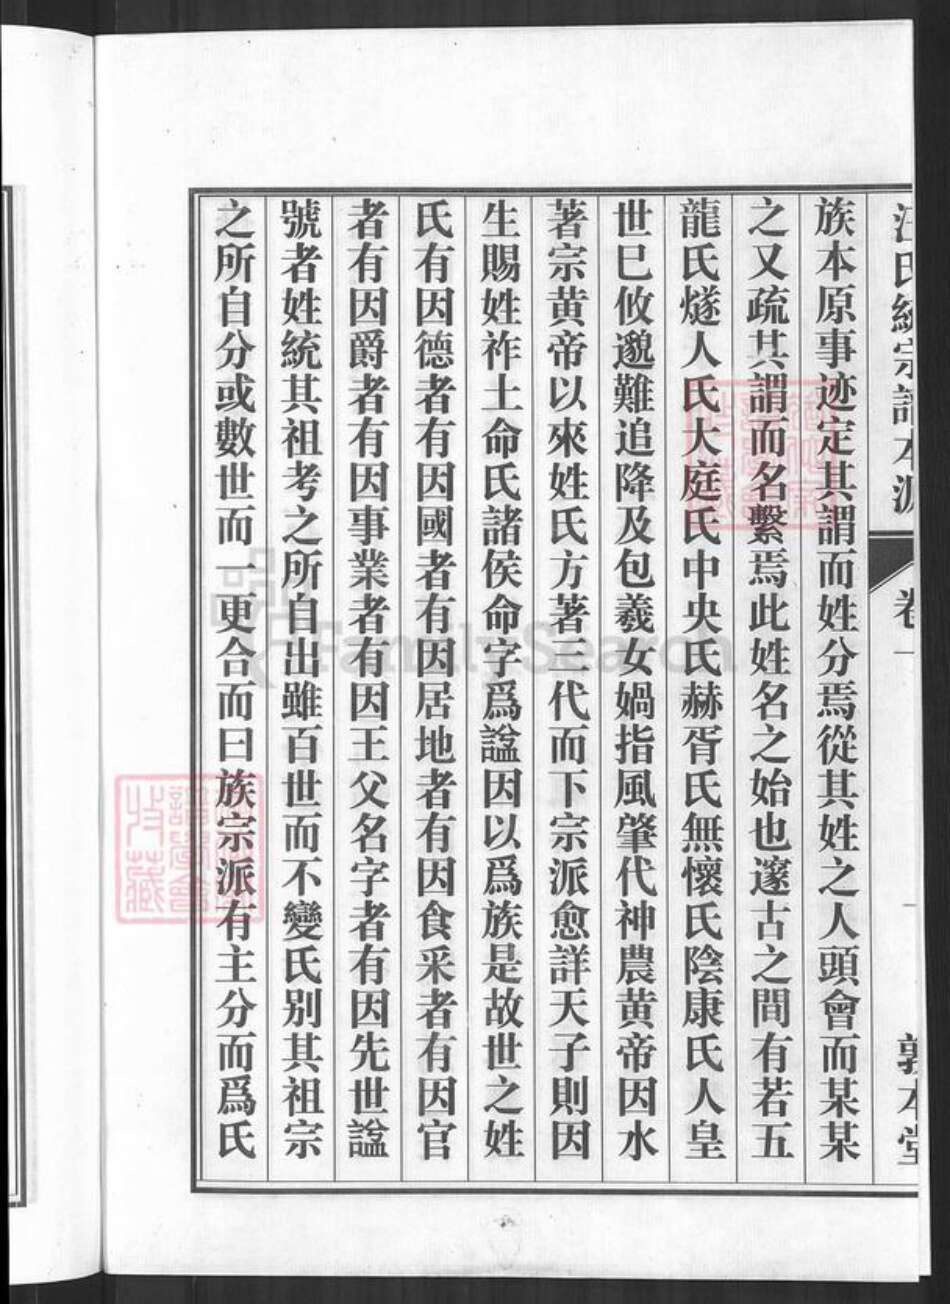 汪氏統宗譜本源 卷一 敦本堂
族本原事迹定其謂而姓分焉從其姓之人頭會而某某
之又疏其謂而名繫焉此姓名之始也邃古之間有若五
龍氏燧人氏大庭氏中央氏赫胥氏無懷氏陰康氏人皇
世巳攸邈難追降及包羲女媧指風肇代神農黃帝因水
著宗黃帝以來姓氏方著三代而下宗派愈詳天子則因
生賜姓祚土命氏諸侯命字爲諡因以爲族是故世之姓
氏有因德者有因國者有因居地者有因食采者有因官
者有因爵者有因事業者有因王父名字者有因先世諡
號者姓統其祖考之所自出雖百世而不變氏別其祖宗
之所自分或數世而一更合而曰族宗派有主分而爲氏
FamilySearch